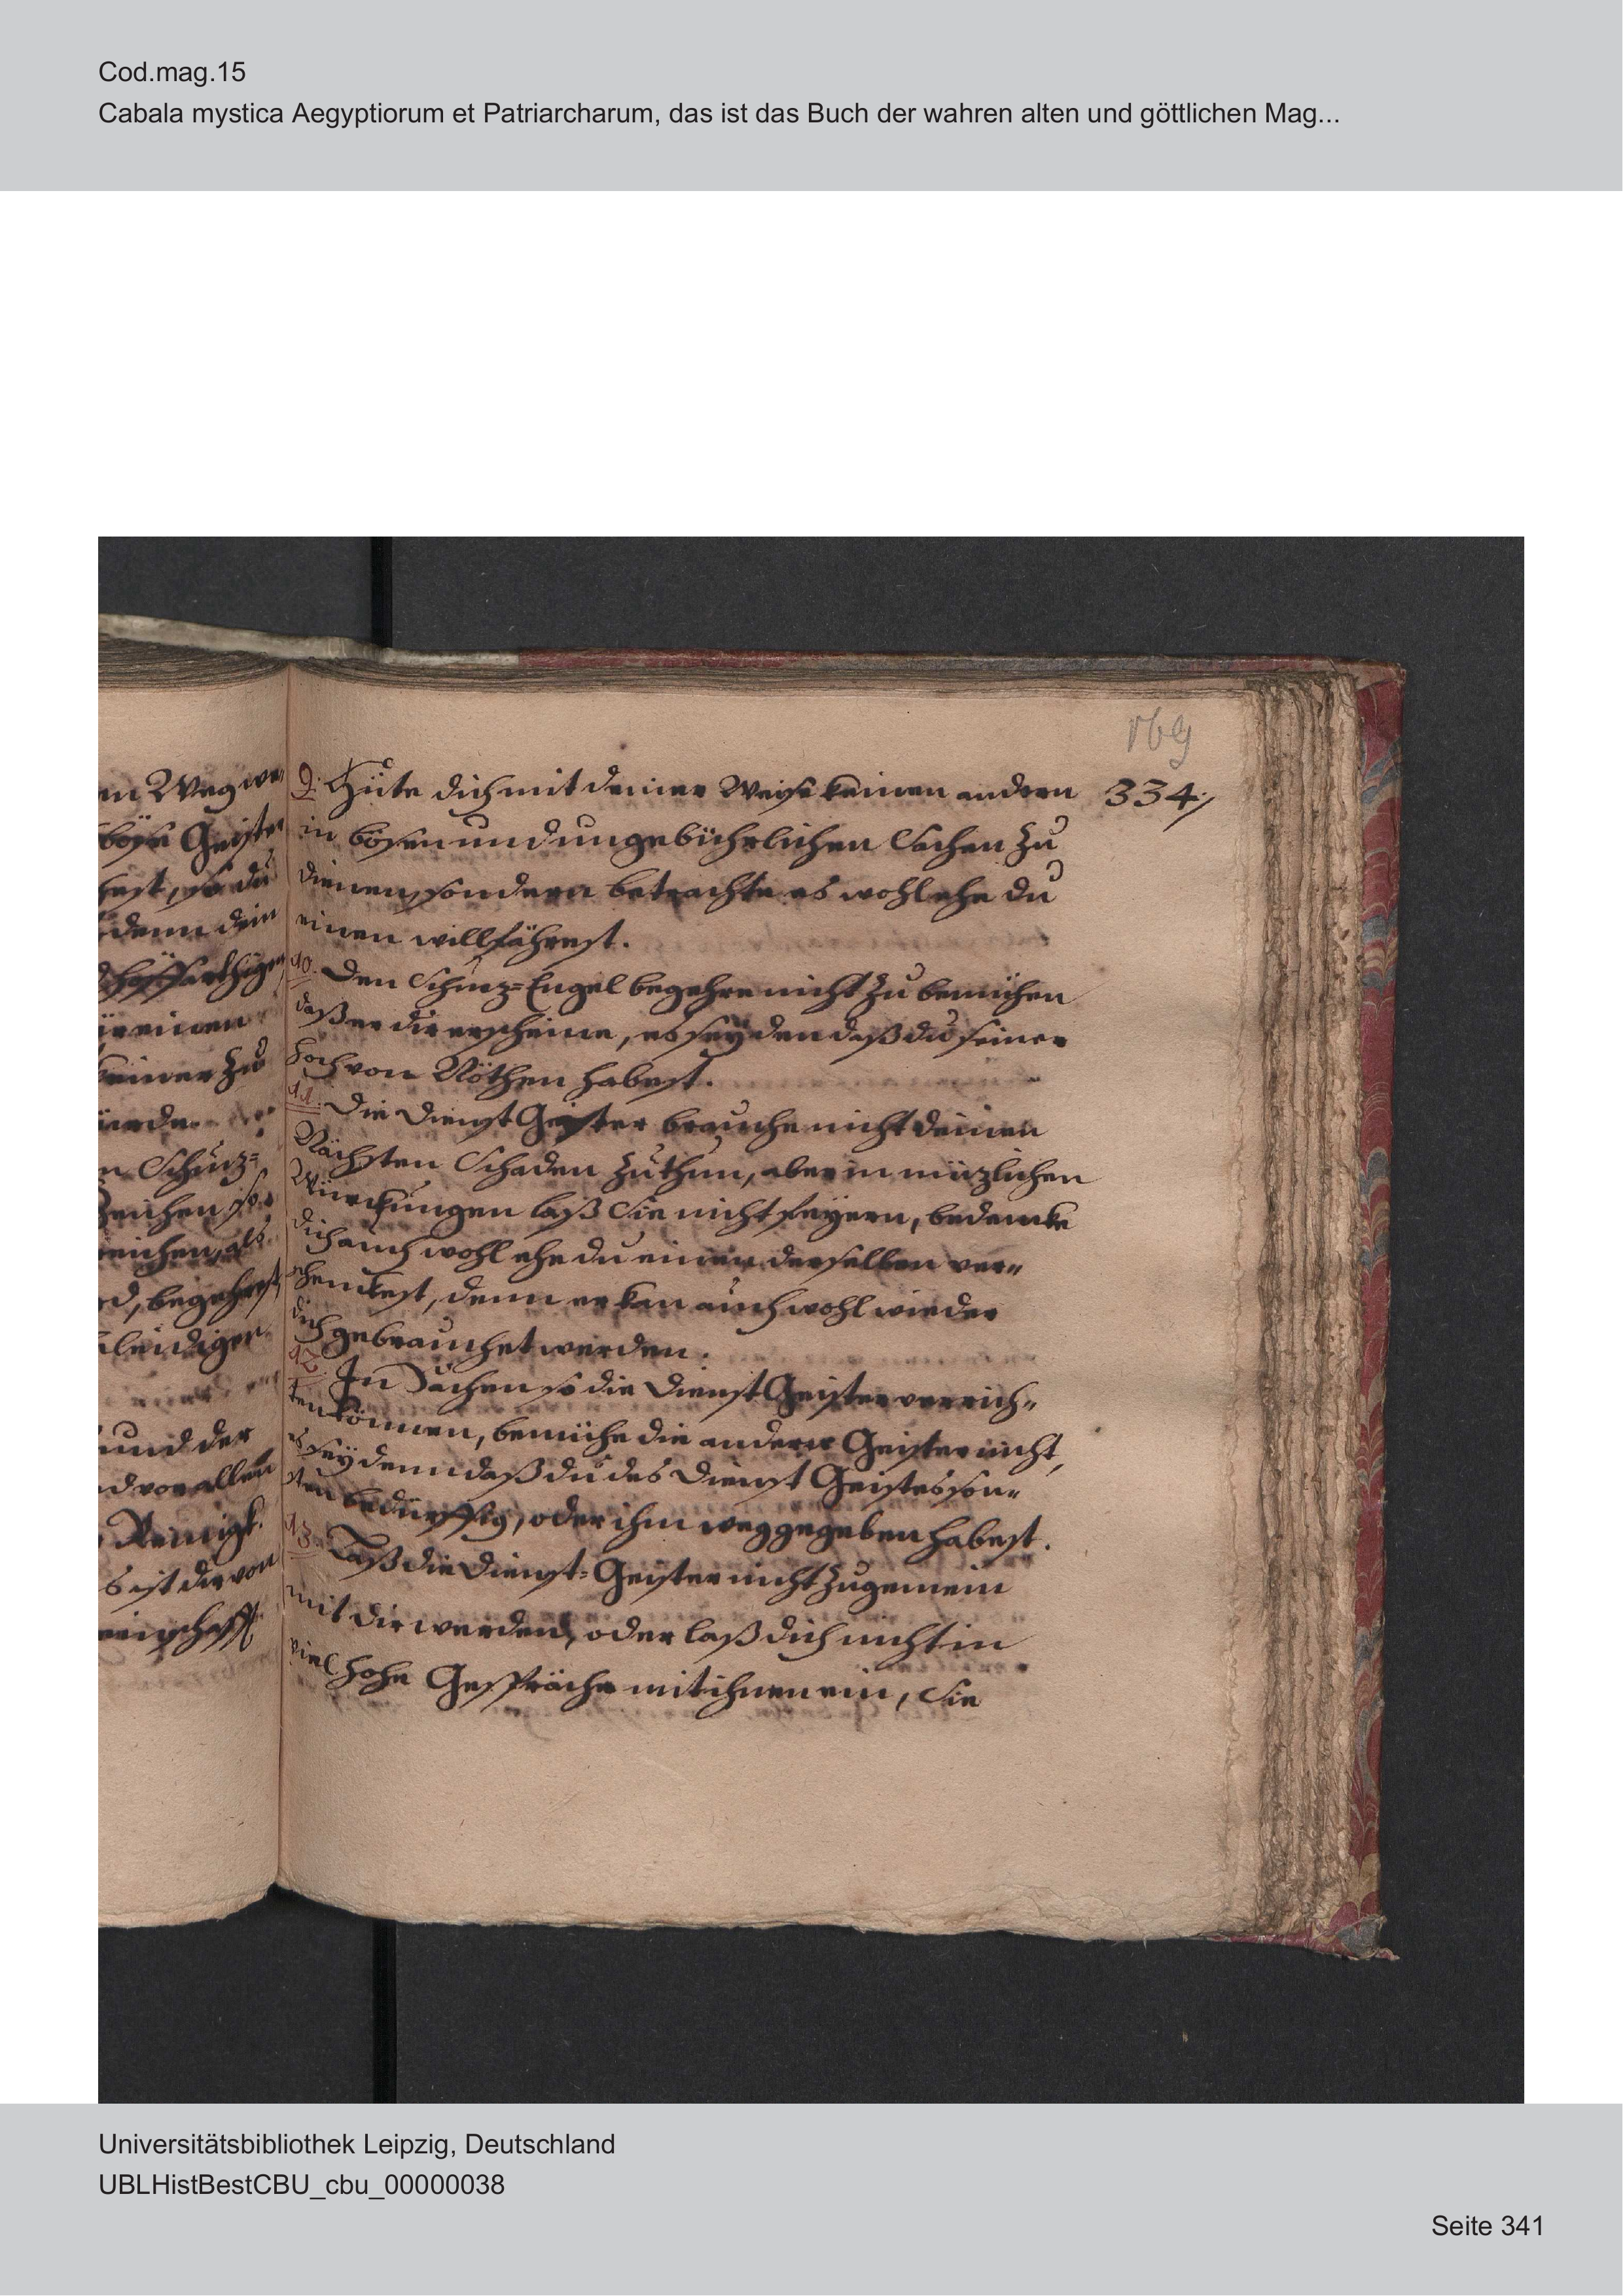 Cod.mag.15
Cabala mystica Aegyptiorum et Patriarcharum, das ist das Buch der wahren alten und göttlichen Mag...
169
en Weg we
böse Geister
hest, so du
denn dein
hoffärthigen
einen
keiner zu
würde
n Schuz=
Zeichen so
reichen, als
d, begehrest
leidiger
und der
d vor allen
Reinigk.
s ist dir von
meinschafft
9. Hüte dich mit deiner Weise keinen andern 334./
in bösen und ungebührlichen Sachen zu
dienen, sondern betrachte es wohl ehe du
einen willfährest.
10. Den Schuz=Engel begehre nicht zu bemühen
daß er dir erscheine, es sey den daß du seiner
hoch von Nöthen habest.
11. Die Dienst Geister brauche nicht deinen
Nächsten Schaden zu thun, aber in nüzlichen
Würckungen laß Sie nicht feyern, bedencke
dich auch wohl ehe du einen derselben ver=
schenckest, denn er kan auch wohl wieder
dich gebrauchet werden.
12. In Sachen so die Dienst Geister verrich=
ten können, bemühe die andern Geister nicht,
es sey denn daß du des Dienst Geistes son=
sten bedürfftig, oder ihm weggegeben habest.
13. Laß die Dienst=Geister nicht zu gemein
mit dir werden, oder laß dich nicht in
viel hohe Gespräche mit ihnen ein, Sie
Universitätsbibliothek Leipzig, Deutschland
UBLHistBestCBU_cbu_00000038
Seite 341